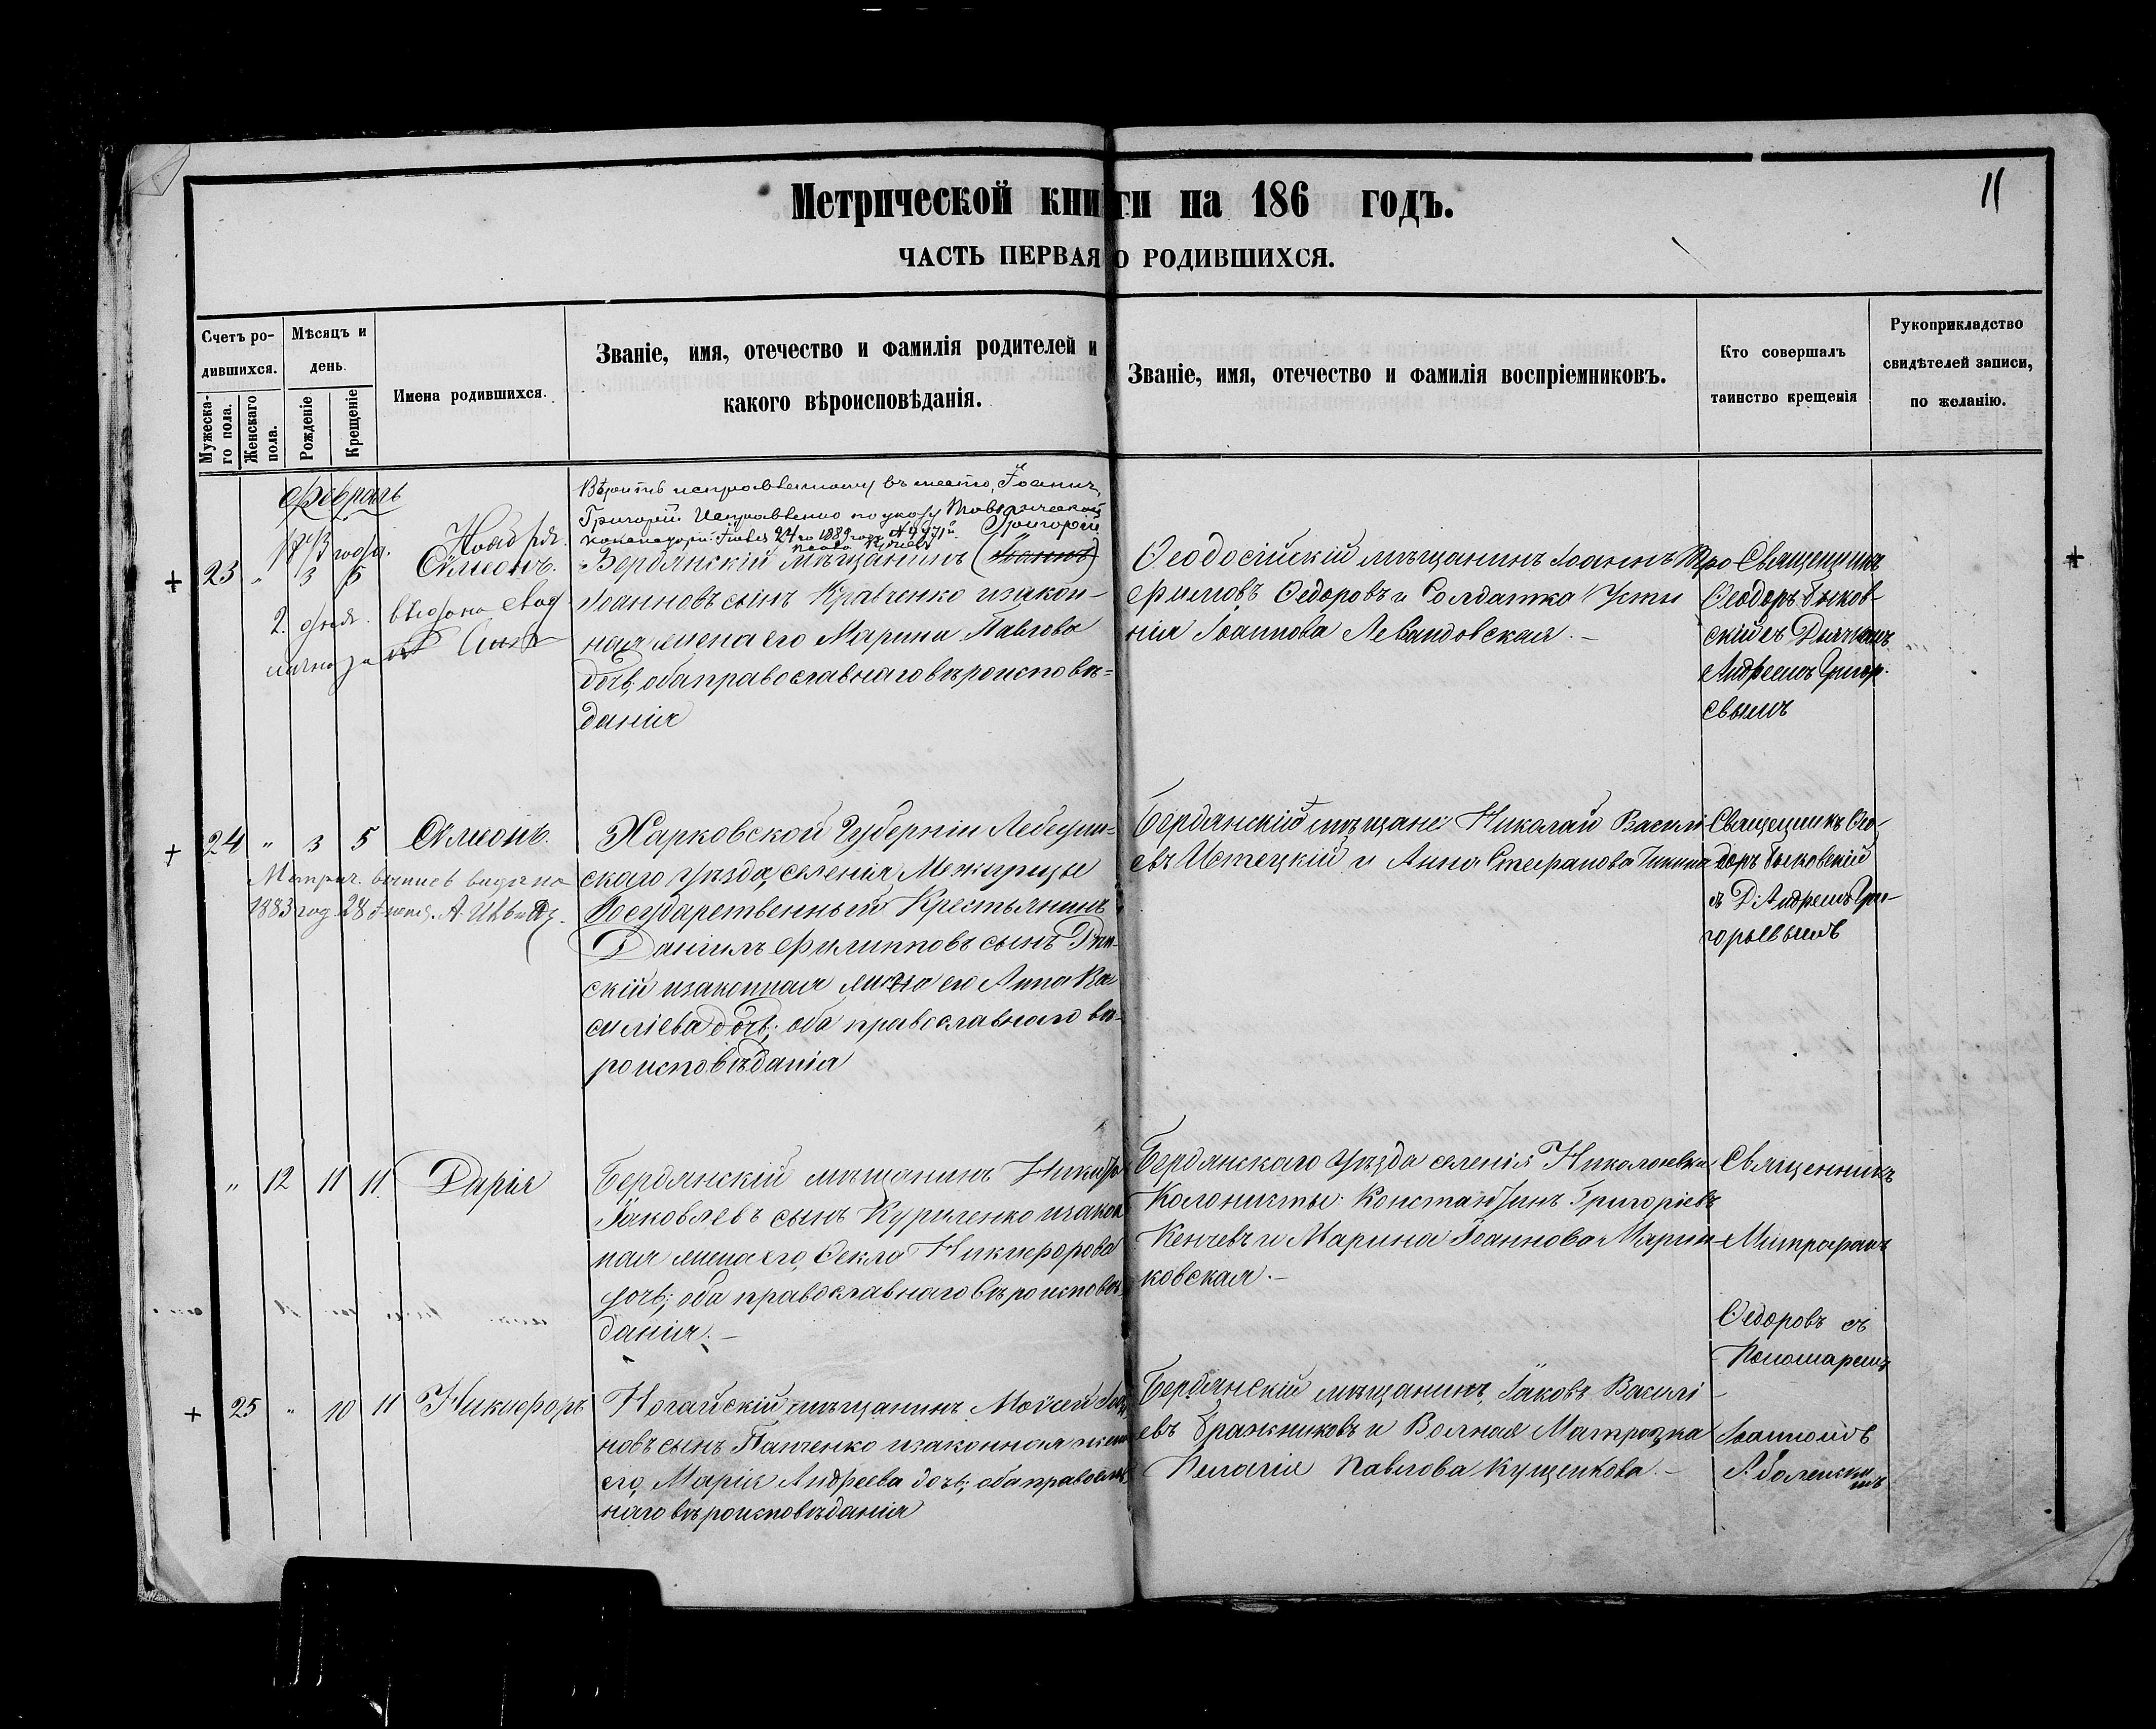 11
Метрической книги на 186 годъ.
ЧАСТЬ ПЕРВАЯ О РОДИВШИХСЯ.
Счетъ ро-
дившихся.
Мужеска-
го пола.
Женскаго
пола.
Мѣсяцъ и
день.
Рожденіе
Крещеніе
Имена родившихся.
Званіе, имя, отечество и фамилія родителей и
какого вѣроисповѣданія.
Званіе, имя, отечество и фамилія воспріемниковъ.
Кто совершалъ
таинство крещенія
Рукоприкладство
свидѣтелей записи,
по желанію.
Февраль
Вѣрить исправленному вместо, Іоаннъ,
Григорій. Исправлено по указу Таврической
24го 1889 года № 4971й
23 " 3 5 Симеонъ.
Бердянскій мѣщанинъ (Іоаннъ) Григорій
Іоанновъ сынъ Кравченко и закон-
ная жена его Марина Павлова
дочь; оба православнаго вѣроисповѣ-
данія
Ѳеодосійскій мѣщанинъ Іоаннъ Тро-
фимовъ Ѳедоровъ и Солдатка Усти
нія Іоаннова Левандовская.—
Священникъ
Ѳеодоръ Быков-
скій съ Дьячкомъ
Андреемъ Григор-
евымъ
24 " 3 5 Симеонъ.
Метрич. выпись выдана
1883 год. 28
Харковской Губерніи Лебедин-
скаго уѣзда, селенія Межиричи
Государственный Крестьянинъ
Даніилъ Филипповъ сынъ
скій и законная жена его Анна Ва-
силіева дочь; оба православнаго вѣ-
роисповѣданія
Бердянскій мѣщане: Николай Василі-
евъ Истецкій и Анна Стефанова
Священникъ Ѳео-
доръ Быковскій
съ Д. Андреемъ Гри-
горьевымъ
" 12 11 11 Дарія
Бердянскій мѣщанинъ Никифо
Іаковлевъ сынъ Куриленко и закон
ная жена его, Ѳекла Никифорова
дочь; оба православнаго вѣроисповѣ-
данія.—
Бердянскаго уѣзда селенія Николаевки
Колонисты: Константинъ Григоріевъ
Кенчевъ и Марина Іоаннова Марин-
ковская.—
Священникъ
Митрофанъ
Ѳедоровъ съ
Пономаремъ
25 " 10 11 Никифоръ
Ногайскій мѣщанинъ Моисей
новъ сынъ Панченко и законная жена
его, Марія Андреева дочь; оба православ-
наго вѣроисповѣданія
Бердянскій мѣщанинъ, Іаковъ Василі-
евъ Бражниковъ и Вольная Матрозка
Пелагія Павлова Кущенкова.—
Іоанномъ